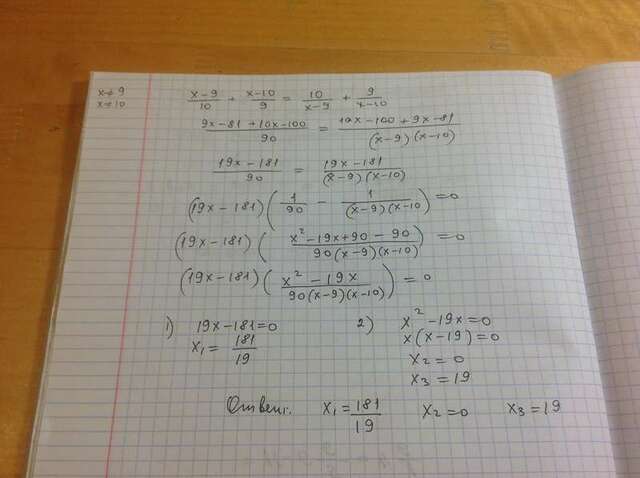 x ≠ 9
x ≠ 10
(x-9)/10 + (x-10)/9 = 10/(x-9) + 9/(x-10)
(9x-81+10x-100)/90 = (10x-100+9x-81)/((x-9)(x-10))
(19x-181)/90 = (19x-181)/((x-9)(x-10))
(19x-181)(1/90 - 1/((x-9)(x-10))) = 0
(19x-181)((x²-19x+90-90)/(90(x-9)(x-10))) = 0
(19x-181)((x²-19x)/(90(x-9)(x-10))) = 0
1) 19x-181=0
x₁ = 181/19
2) x²-19x=0
x(x-19)=0
x₂=0
x₃=19
Ответ: x₁ = 181/19 x₂=0 x₃=19